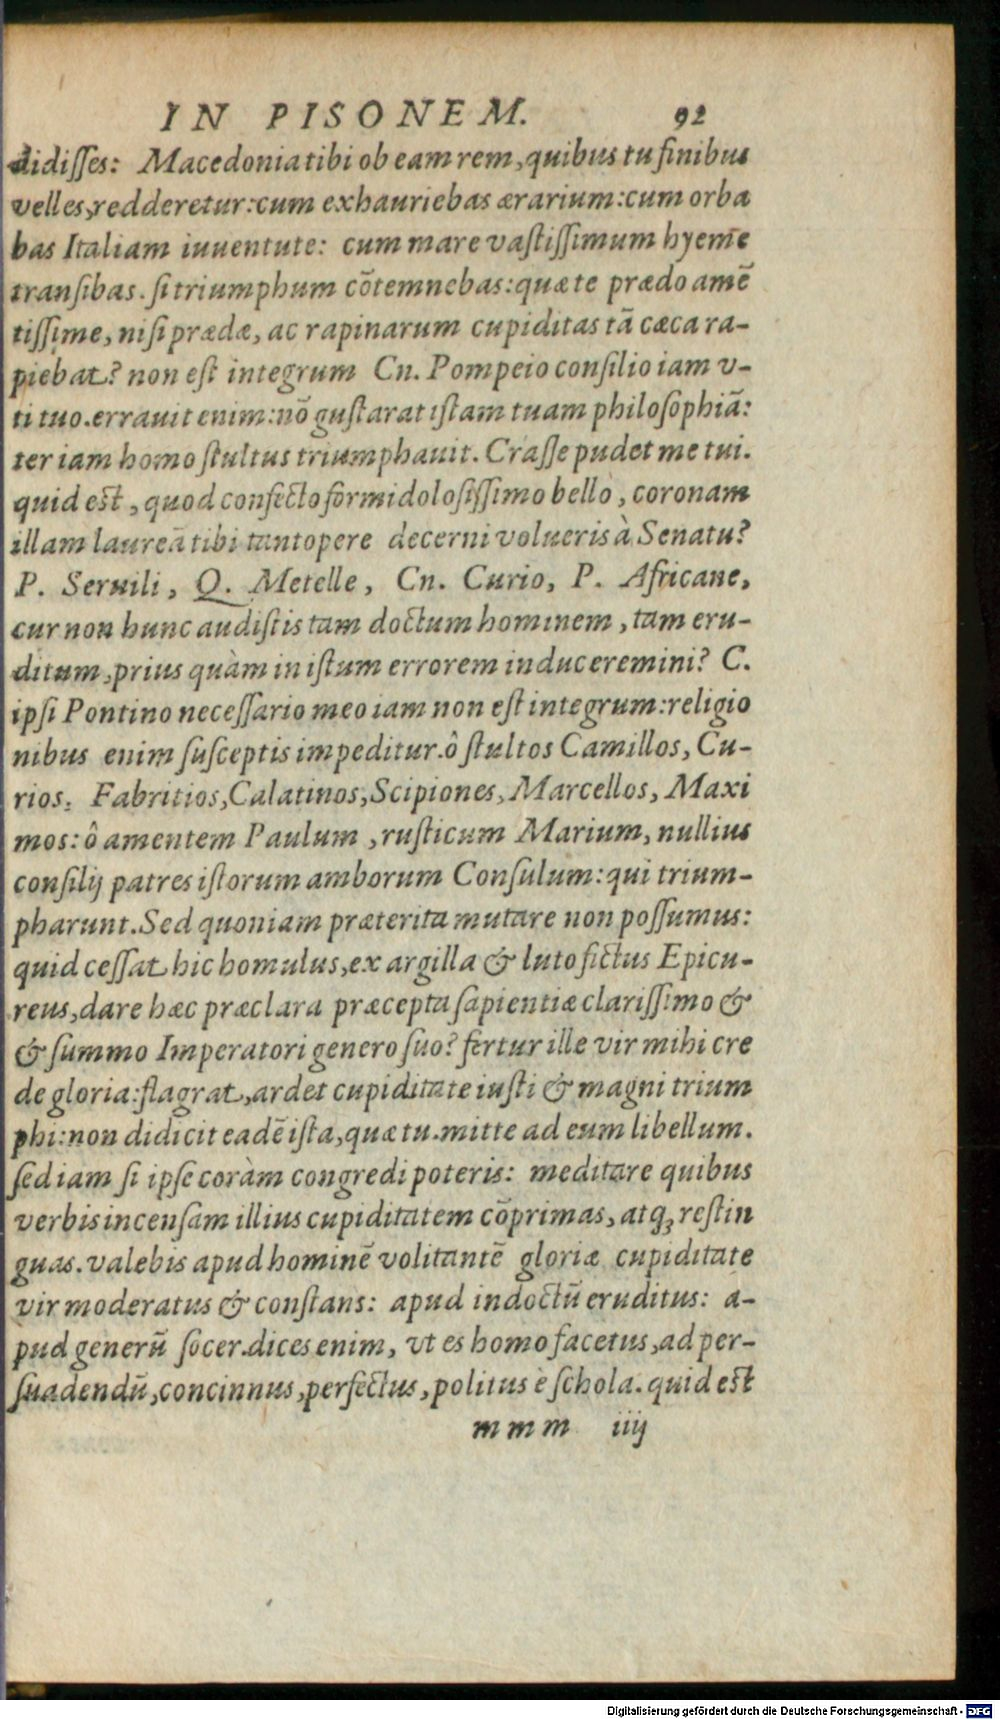 IN PISONEM. 92
didiſſes: Macedonia tibi ob eam rem, quibus tu finibus
velles, redderetur: cum exhauriebas ærarium: cum orba
bas Italiam iuuentute: cum mare vaſtiſſimum hyeme
tranſibas. ſi triumphum cōtemnebas: quæ te prædo amē
tiſſime, niſi prædæ, ac rapinarum cupiditas tā cæca ra-
piebat? non eſt integrum Cn. Pompeio conſilio iam v-
ti tuo. errauit enim: nō guſtarat iſtam tuam philoſophiā:
ter iam homo ſtultus triumphauit. Craſſe pudet me tui.
quid eſt, quod confecto formidoloſiſſimo bello, coronam
illam laureā tibi tantopere decerni volueris à Senatu?
P. Seruili, Q. Metelle, Cn. Curio, P. Africane,
cur non hunc audiſtis tam doctum hominem, tam eru-
ditum, prius quàm in iſtum errorem induceremini? C.
ipſi Pontino neceſſario meo iam non eſt integrum: religio
nibus enim ſuſceptis impeditur. ô ſtultos Camillos, Cu-
rios, Fabritios, Calatinos, Scipiones, Marcellos, Maxi
mos: ô amentem Paulum, ruſticum Marium, nullius
conſilij patres iſtorum amborum Conſulum: qui trium-
pharunt. Sed quoniam præterita mutare non poſſumus:
quid ceſſat hic homulus, ex argilla & luto fictus Epicu-
reus, dare hæc præclara præcepta ſapientiæ clariſſimo &
& ſummo Imperatori genero ſuo? fertur ille vir mihi cre
de gloria: flagrat, ardet cupiditate iuſti & magni trium
phi: non didicit eadē iſta, quæ tu. mitte ad eum libellum.
ſed iam ſi ipſe coràm congredi poteris: meditare quibus
verbis incenſam illius cupiditatem cōprimas, atq; reſtin
guas. valebis apud hominē volitantē gloriæ cupiditate
vir moderatus & conſtans: apud indoctū eruditus: a-
pud generū ſocer. dices enim, vt es homo facetus, ad per-
ſuadendū, concinnus, perfectus, politus è ſchola. quid eſt
m m m iiij
Digitalisierung gefördert durch die Deutsche Forschungsgemeinschaft - DFG